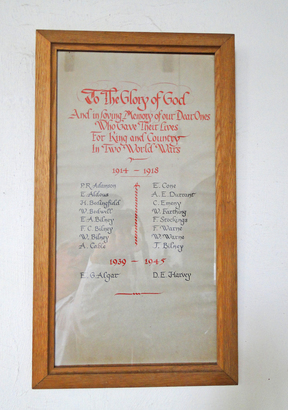 To The Glory of God
And in loving Memory of our Dear Ones
Who Gave Their Lives
For King and Country
In Two World Wars
1914 - 1918
P.R. Adamson E. Cone
E. Aldous A. E. Durrant
H. C. Emeny
W. W. Farthing
E. A. Bilney F. Stockings
F. C. Bilney E. Warne
W. Bilney W. Warne
A. T. Bilney
1939 - 1945
E. G. Algar D. E. Harvey